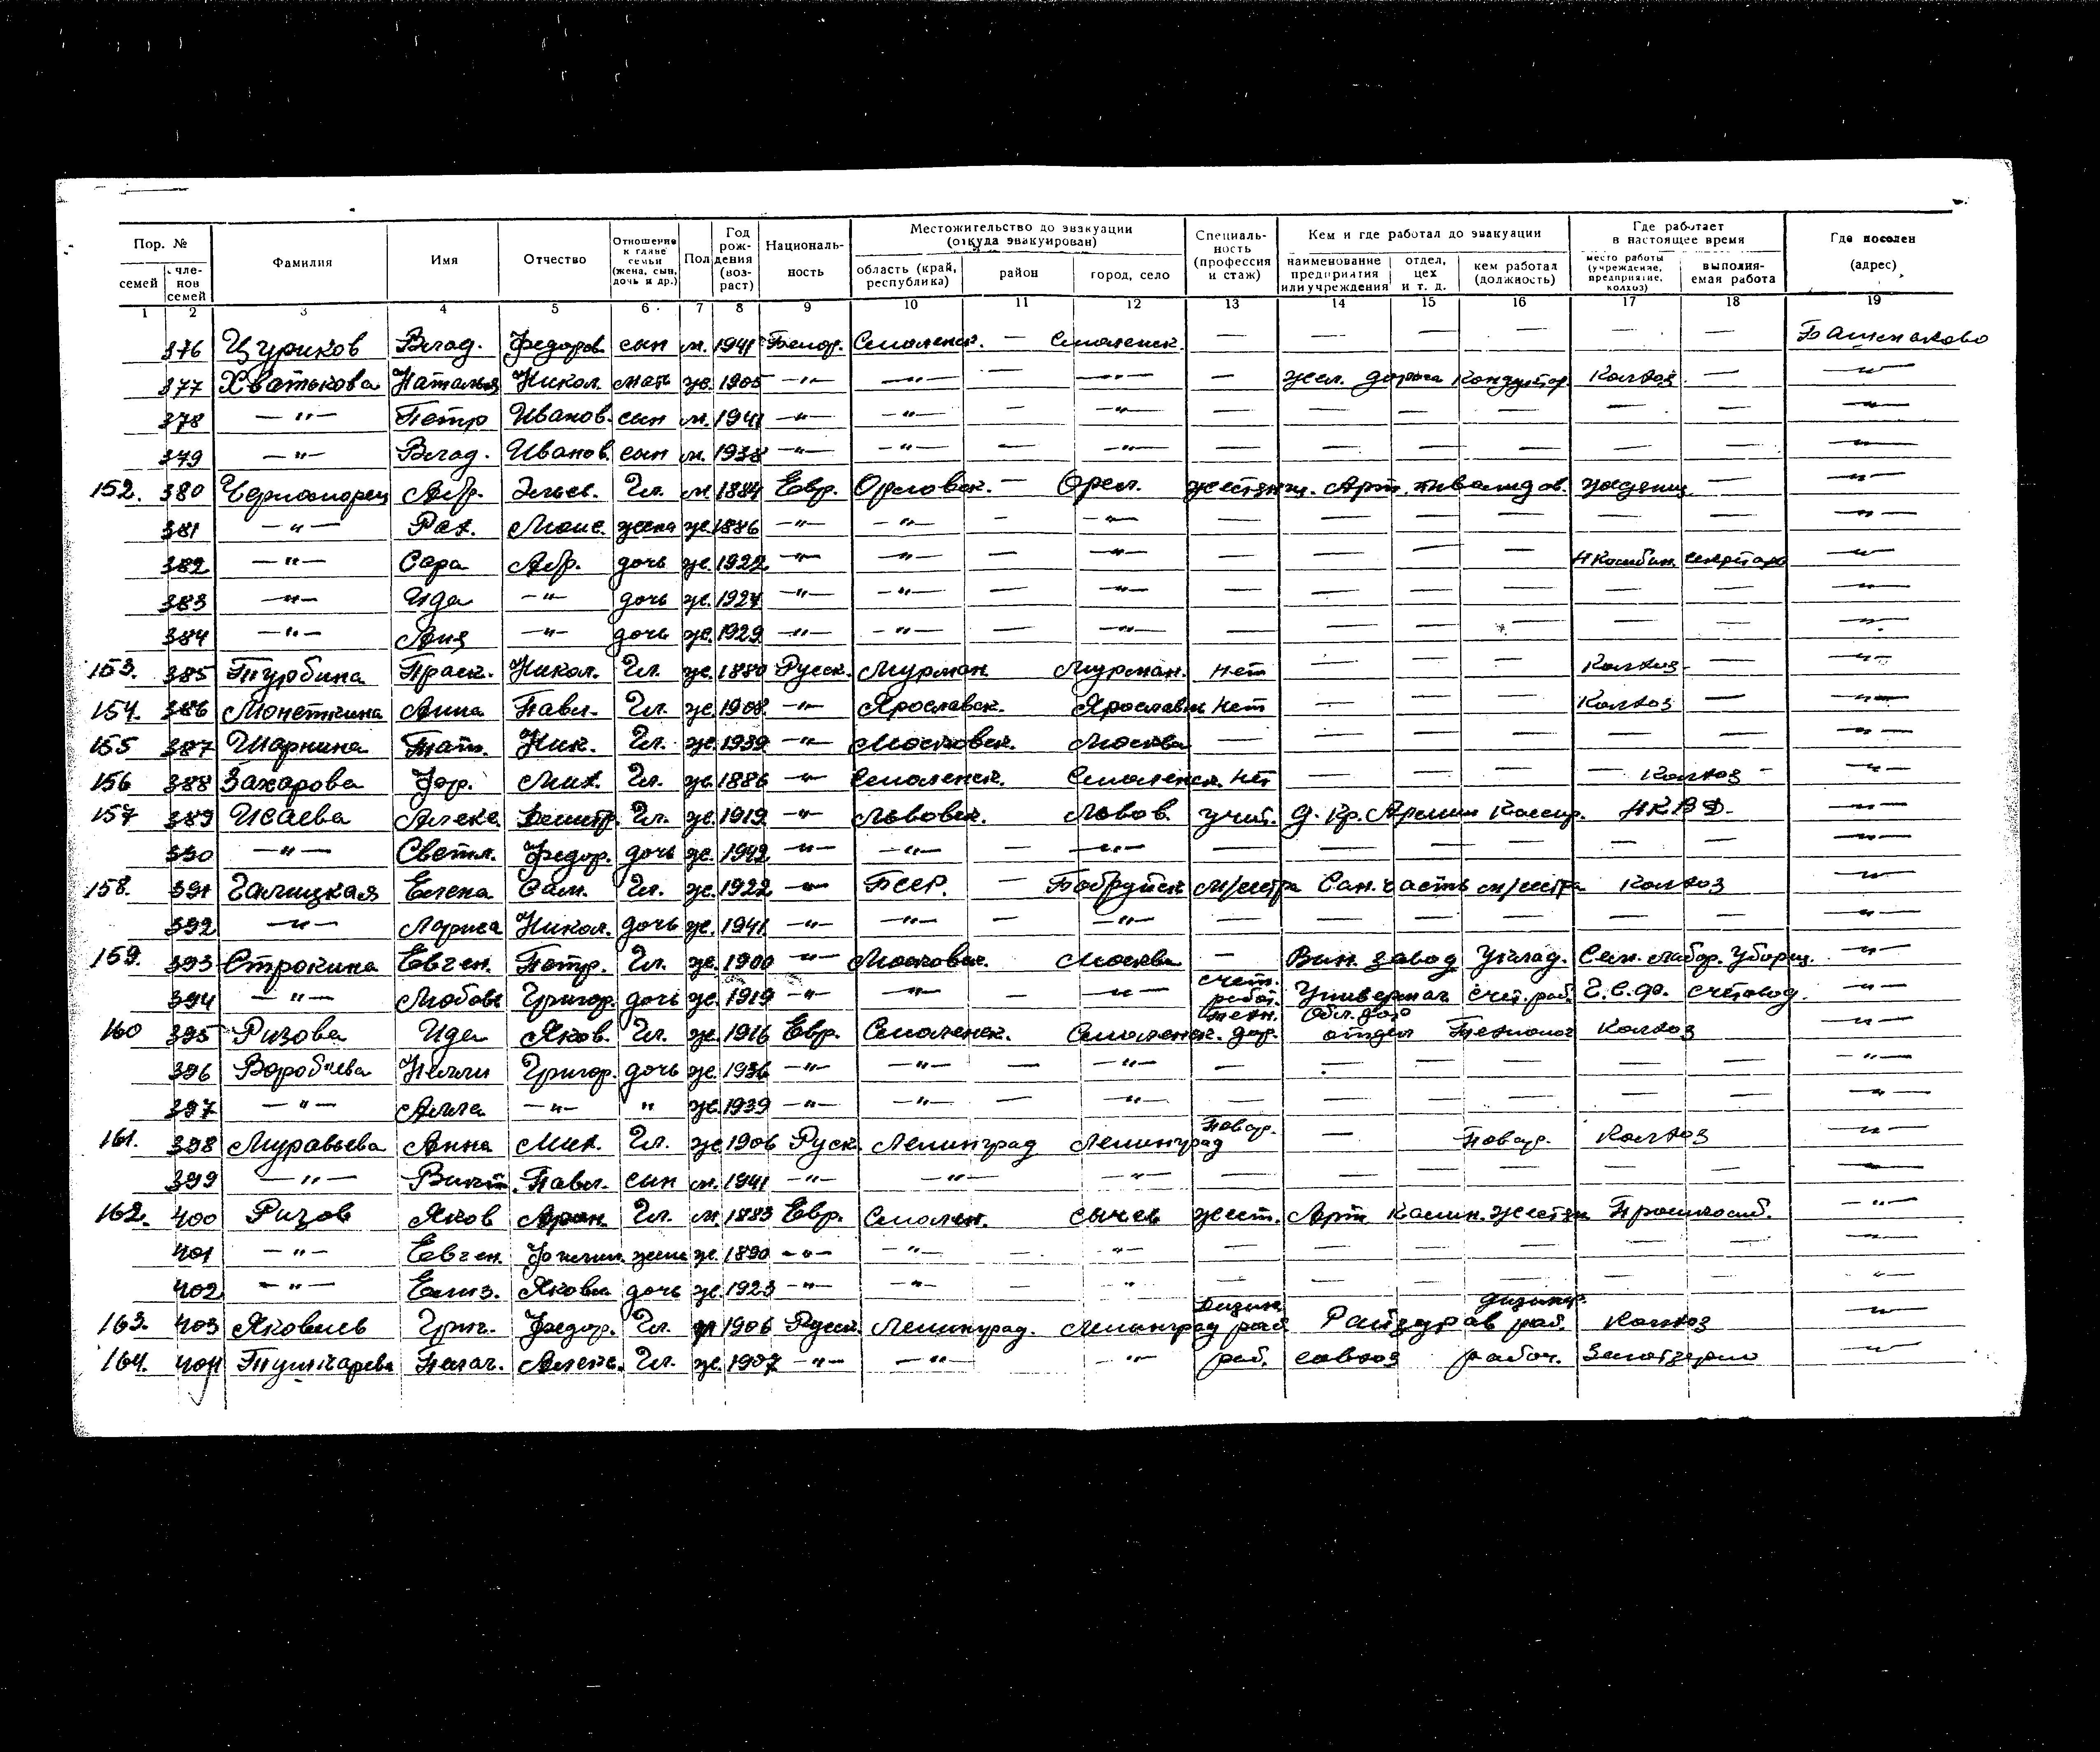 Пор. № Фамилия Имя Отчество Отношение к главе семьи (жена, сын, дочь и др.) Пол Год рождения (возраст) Национальность Местожительство до эвакуации (откуда эвакуирован) Специальность (профессия и стаж) Кем и где работал до эвакуации Где работает в настоящее время Где поселен (адрес)
семей членов семей область (край, республика) район город, село наименование предприятия или учреждения отдел, цех и т. д. кем работал (должность) место работы (учреждение, предприятие, колхоз) выполняемая работа
1 2 3 4 5 6 7 8 9 10 11 12 13 14 15 16 17 18 19
376 Цуриков Влад. Федоров. сын м. 1941 Белор. Смоленск. — Смоленск. — — — — — — Башмаково
377 Хватькова Наталья Никол. мать ж. 1905 —"— —"— — —"— — жел. дорога Кондуктор Колхоз — —"—
378 —"— Петр Иванов. сын м. 1941 —"— —"— — —"— — — — — — — —"—
379 —"— Влад. Иванов. сын м. 1938 —"— —"— — —"— — — — — — — —"—
152. 380 Черноморец Абр. Эльев. Гл. м 1884 Евр. Орловск. — Орел. жестянщ. Арт. инвалидов. — —"—
381 —"— Рах. Моис. жена ж. 1886 —"— —"— — —"— — — — — — — —"—
382 —"— Сара Абр. дочь ж. 1922 —"— —"— — —"— — — — — секретарь —"—
383 —"— Ида —"— дочь ж. 1927 —"— —"— — —"— — — — — — — —"—
384 —"— Аня —"— дочь ж. 1929 —"— —"— — —"— — — — — — — —"—
153. 385 Турбина Праск. Никол. Гл. ж. 1880 Русск. Мурман. Мурман. нет — — — Колхоз — —"—
154. 386 Монеткина Анна Павл. Гл. ж. 1908 —"— Ярославск. Ярославль нет — — — Колхоз — —"—
155 387 Шарнина Тат. Ник. Гл. ж. 1939 —"— Московск. Москва — — — — — — —"—
156 388 Захарова Мих. Гл. ж. 1886 —"— Смоленск. Смоленск. нет — — — Колхоз — —"—
157 389 Исаева Алекс. Дмитр. Гл. ж. 1919 —"— Львовск. Львов. учит. Д. Кр. Армии Кассир. НКВД. —"—
390 —"— Светл. Федор. дочь ж. 1942 —"— —"— — —"— — — — — — — —"—
158. 391 Галицкая Елена Сам. Гл. ж. 1922 —"— БССР. — Бобруйск м/сестра Сан. часть м/сестра Колхоз —"—
392 —"— Лариса Никол. дочь ж. 1941 —"— —"— — —"— — — — — — — —"—
159. 393 Строкина Евген. Петр. Гл. ж. 1900 —"— Московск. Москва — Вин. завод Уклад. Сан. лабор. Уборщ. —"—
394 —"— Любовь Григор. дочь ж. 1919 —"— —"— — —"— счет. работ. Универмаг счет. раб. Г.С.Ф. счетовод. —"—
160 395 Ризова Ида Яков. Гл. ж. 1916 Евр. Смоленск. Смоленск. техн. дор. Обл. дор. отдел Технолог Колхоз —"—
396 Воробьева Нелли Григор. дочь ж. 1936 —"— —"— — —"— — — — — — — —"—
397 —"— Алла —"— " ж. 1939 —"— —"— — —"— — — — — — — —"—
161. 398 Муравьева Анна Мих. Гл. ж. 1906 Русск. Ленинград Ленинград Повар. — Повар. Колхоз —"—
399 —"— Викт. Павл. сын м. 1941 —"— —"— —"— — — — — — — —"—
162. 400 Ризов Яков Арон. Гл. м. 1883 Евр. Смолен. Сычев жест. Арт. Калин. жестян Промкомб. —"—
401 —"— Евген. жена ж. 1890 —"— —"— — —"— — — — — — — —"—
402 —"— Елиз. Яковл. дочь ж. 1923 —"— —"— — —"— — — — — — — —"—
163. 403 Яковлев Григ. Федор. Гл. 1906 Русск. Ленинград. Ленинград раб. Райздрав раб. Колхоз —"—
164. 404 Тушкарева Пелаг. Алекс. Гл. ж. 1907 —"— —"— —"— раб. совхоз рабоч. Заготзерно —"—